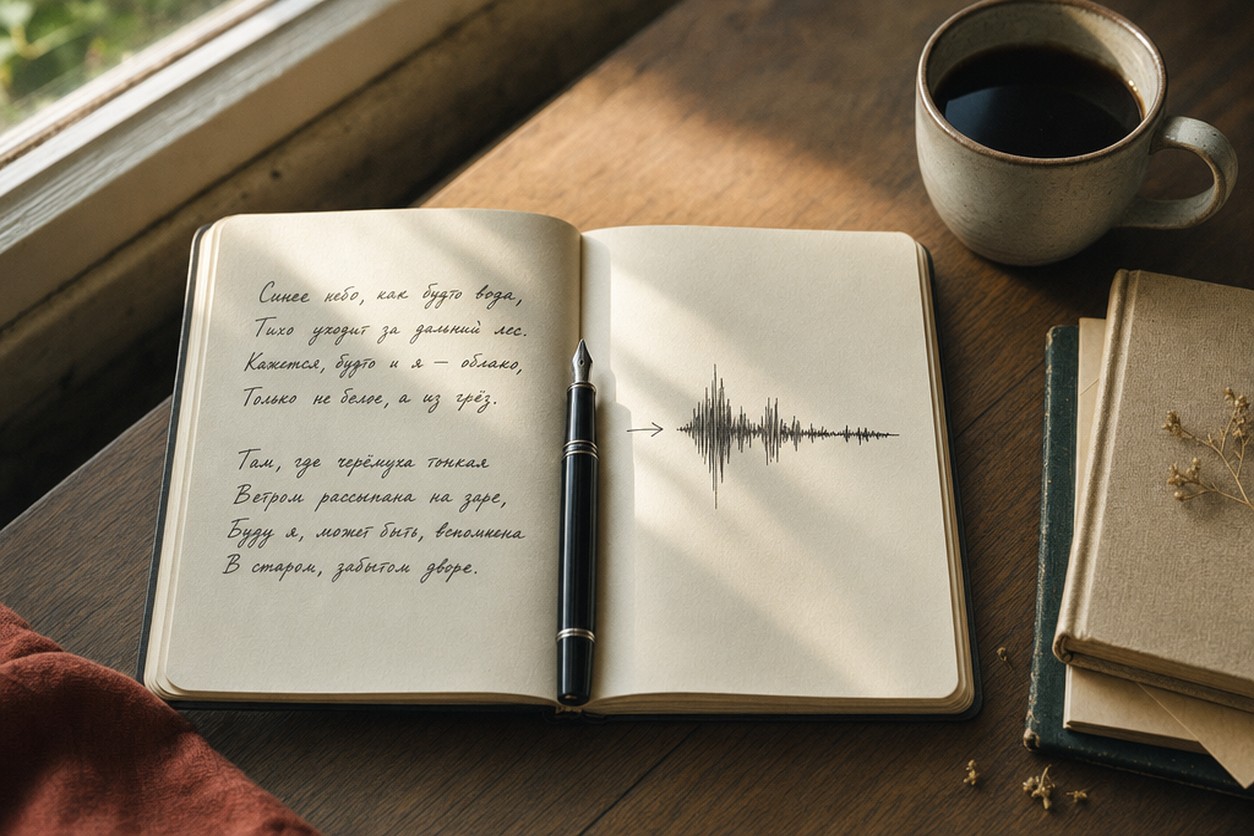 Синее небо, как будто вода,
Тихо уходит за дальний лес.
Кажется, будто и я — облако,
Только не белое, а из грёз.
Там, где черёмуха тонкая
Ветром рассыпана на заре,
Буду я, может быть, вспомнена
В старом, забытом дворе.